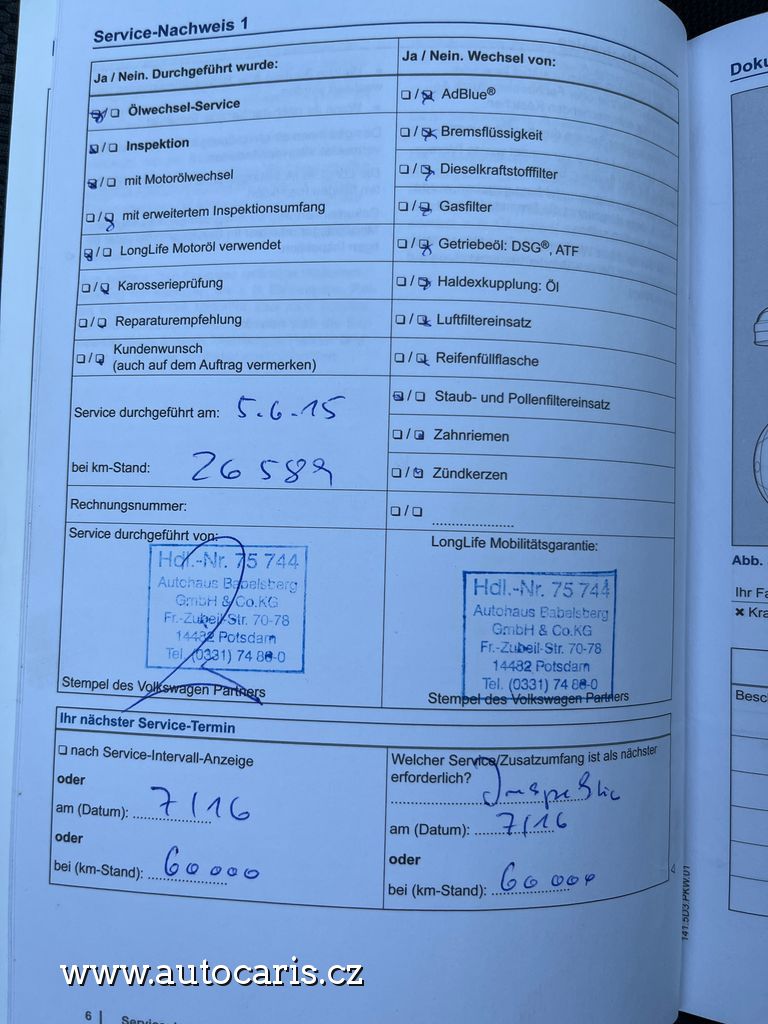 Service-Nachweis 1
Ja / Nein. Durchgeführt wurde:
Ölwechsel-Service
Inspektion
mit Motorölwechsel
mit erweitertem Inspektionsumfang
LongLife Motoröl verwendet
Karosserieprüfung
Reparaturempfehlung
Kundenwunsch
(auch auf dem Auftrag vermerken)
Service durchgeführt am: 5.6.15
bei km-Stand: 26589
Rechnungsnummer:
Service durchgeführt von:
Hdl.-Nr. 75 744
Autohaus Babelsberg
GmbH & Co.KG
Fr.-Zubeil-Str. 70-78
14482 Potsdam
Tel. (0331) 74 88-0
Stempel des Volkswagen Partners
Ja / Nein. Wechsel von:
AdBlue®
Bremsflüssigkeit
Dieselkraftstofffilter
Gasfilter
Getriebeöl: DSG®, ATF
Haldexkupplung: Öl
Luftfiltereinsatz
Reifenfüllflasche
Staub- und Pollenfiltereinsatz
Zahnriemen
Zündkerzen
LongLife Mobilitätsgarantie:
Hdl.-Nr. 75 744
Autohaus Babelsberg
GmbH & Co.KG
Fr.-Zubeil-Str. 70-78
14482 Potsdam
Tel. (0331) 74 88-0
Stempel des Volkswagen Partners
Ihr nächster Service-Termin
nach Service-Intervall-Anzeige
oder
am (Datum): 7/16
oder
bei (km-Stand): 60000
Welcher Service/Zusatzumfang ist als nächster
erforderlich?
Inspektion
am (Datum): 7/16
oder
bei (km-Stand): 60000
141.5D3.PKW.01
6
Doku
Abb.
Ihr Fa
Kra
Besch
www.autocaris.cz